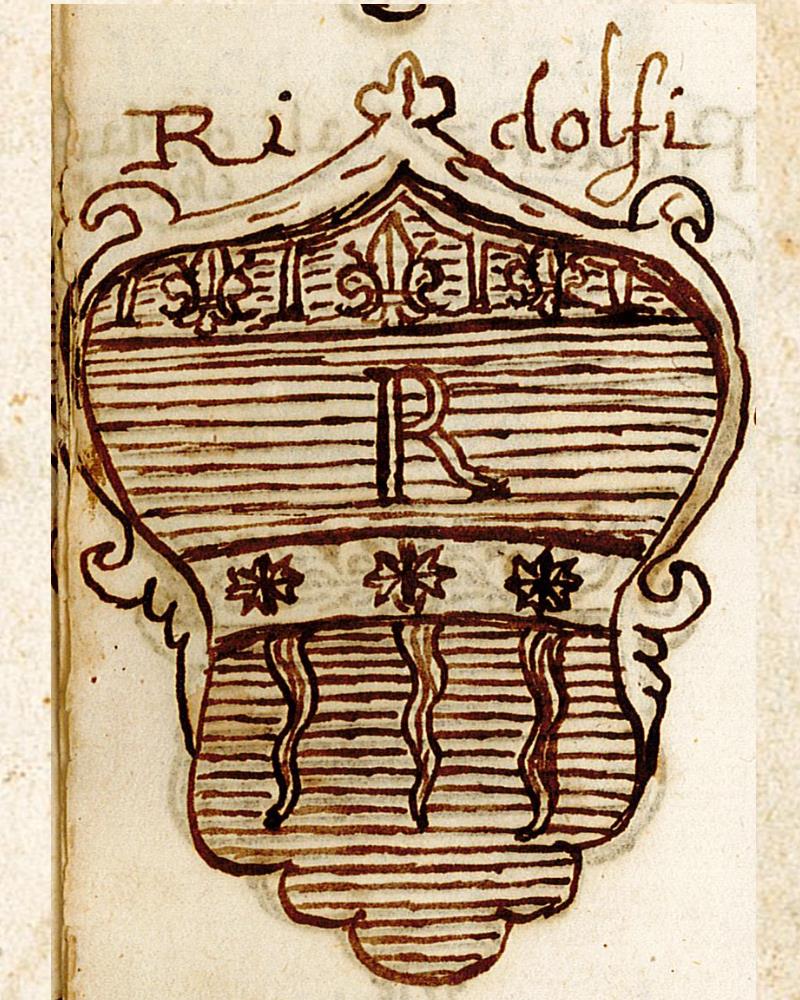 Ri dolfi
R